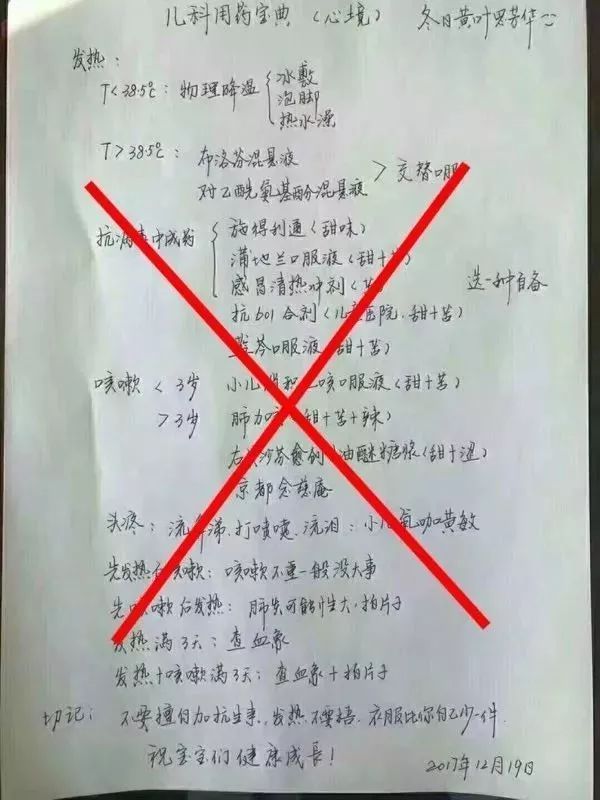 儿科用药宝典（心境） 冬日黄叶思芳华
发热：
T<38.5℃：物理降温 冰敷
泡脚
热水澡
T>38.5℃：布洛芬混悬液
对乙酰氨基酚混悬液 > 交替口服
抗病毒中成药 施得利通（甜味）
蒲地兰口服液（甜+苦）
感冒清热冲剂（苦） 选一种自备
抗601合剂（儿童医院.甜+苦）
芩口服液（甜+苦）
咳嗽 < 3岁 小儿 积 咳口服液（甜+苦）
> 3岁 肺力咳（甜+苦+辣）
右 沙芬愈创 油醚糖浆（甜+涩）
京都念慈庵
头疼：流鼻涕.打喷嚏.流泪：小儿氨咖黄敏
先发热后咳嗽：咳嗽不重一般没大事
先咳嗽后发热：肺炎可能性大.拍片子
发热满3天：查血象
发热+咳嗽满3天：查血象+拍片子
切记：不要擅自加抗生素.发热不要捂.衣服比你自己少一件.
祝宝宝们健康成長！
2017年12月19日